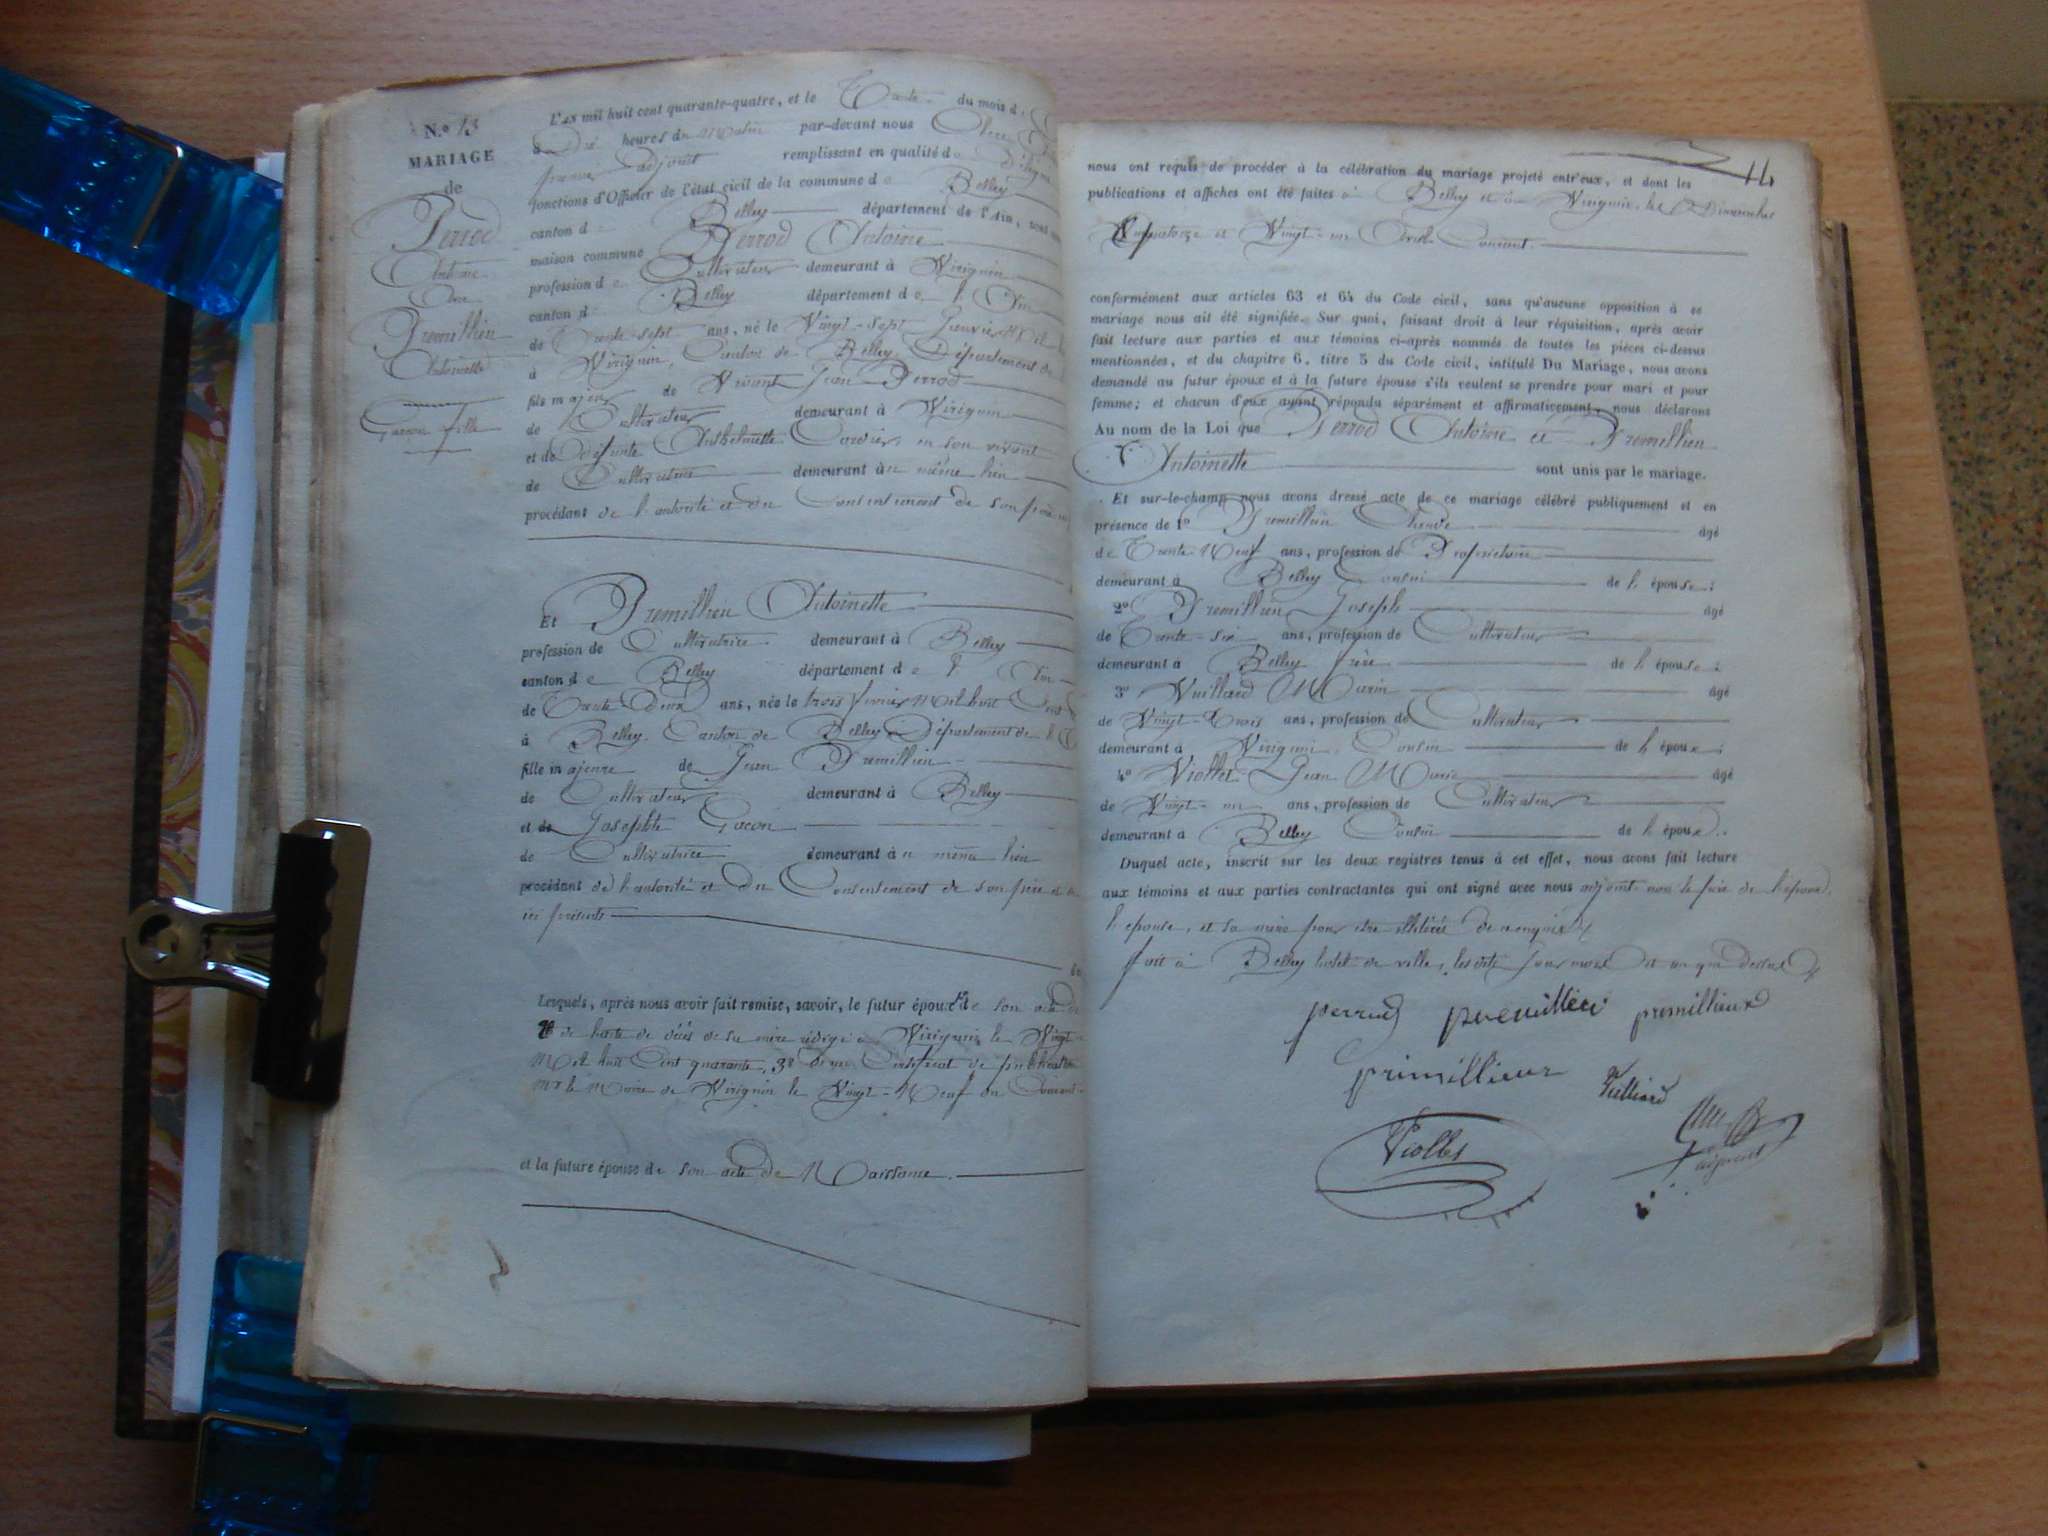 N.º 13
MARIAGE
de
Perrod
Antoine
Avec
Premillieu
Antoinette
Garçon fille
L'an mil huit cent quarante-quatre, et le Trente du mois d
à Dix heures du Matin par-devant nous
premier adjoint remplissant en qualité de
fonctions d'Officier de l'état civil de la commune de Belley
canton de Belley département de l'Ain, sont
maison commune Perrod Antoine
profession de Cultivateur demeurant à Virignin
canton de Belley département de l'Ain
de Trente-sept ans, né le Vingt-sept Janvier Mil
à Virignin, Canton de Belley Département de
fils majeur de Vivant Jean Perrod
de Cultivateur demeurant à Virignin
et de défunte Anthelmette Cordier en son vivant
de Cultivatrice demeurant au même lieu
procédant de l'autorité et du Consentement de son père
Et Premillieu Antoinette
profession de Cultivatrice demeurant à Belley
canton de Belley département de l'Ain
de Trente Deux ans, née le trois février Mil huit Cent
à Belley Canton de Belley Département de l'
fille majeure de Jean Premillieu
de Cultivateur demeurant à Belley
et de Josephte Gacon
de Cultivatrice demeurant au même lieu
procédant de l'autorité et du Consentement de son père et
ici présents
Lesquels, après nous avoir fait remise, savoir, le futur époux 1º de son acte de
2º de l'acte de décès de sa mère rédigé à Virignin le Vingt
Mil huit Cent quarante, 3º d'un Certificat de publication
Mr le Maire de Virignin le Vingt-Neuf du Courant
et la future épouse de son acte de Naissance.
14
nous ont requis de procéder à la célébration du mariage projeté entr'eux, et dont les
publications et affiches ont été faites à Belley et à Virignin, les Dimanches
quatorze et Vingt-un Avril Courant.
conformément aux articles 63 et 64 du Code civil, sans qu'aucune opposition à ce
mariage nous ait été signifiée. Sur quoi, faisant droit à leur réquisition, après avoir
fait lecture aux parties et aux témoins ci-après nommés de toutes les pièces ci-dessus
mentionnées, et du chapitre 6, titre 5 du Code civil, intitulé Du Mariage, nous avons
demandé au futur époux et à la future épouse s'ils veulent se prendre pour mari et pour
femme; et chacun d'eux ayant répondu séparément et affirmativement, nous déclarons
Au nom de la Loi que Perrod Antoine et Premillieu
Antoinette sont unis par le mariage.
Et sur-le-champ nous avons dressé acte de ce mariage célébré publiquement et en
présence de 1º Premillieu Claude âgé
de Trente-Neuf ans, profession de Propriétaire
demeurant à Belley Cousin de l'épouse;
2º Premillieu Joseph âgé
de Trente-six ans, profession de Cultivateur
demeurant à Belley frère de l'épouse;
3º Vuillard Marin âgé
de Vingt-Trois ans, profession de Cultivateur
demeurant à Virignin Cousin de l'époux;
4º Viollet Jean Marie âgé
de Vingt-un ans, profession de Cultivateur
demeurant à Belley Cousin de l'époux.
Duquel acte, inscrit sur les deux registres tenus à cet effet, nous avons fait lecture
aux témoins et aux parties contractantes qui ont signé avec nous adjoint non le père de l'époux,
l'épouse, et sa mère pour être illitérés de ce enquis
fait à Belley hotel de ville, les dits jour mois et an que dessus
perrod premillieu premillieux
primillieux Vulliard
Violles
adjoint